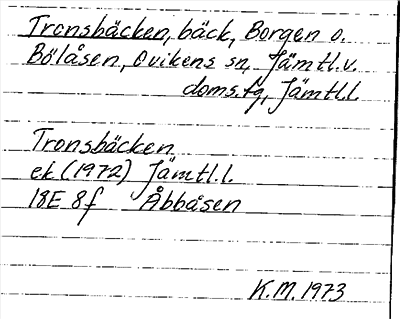 Tronsbäcken, bäck, Borgen o.
Bölåsen, Ovikens sn, Jämtl.v.
doms.tg, Jämtl.l.
Tronsbäcken
ek (1972) Jämtl.l.
18E 8f Åbbåsen
K.M. 1973